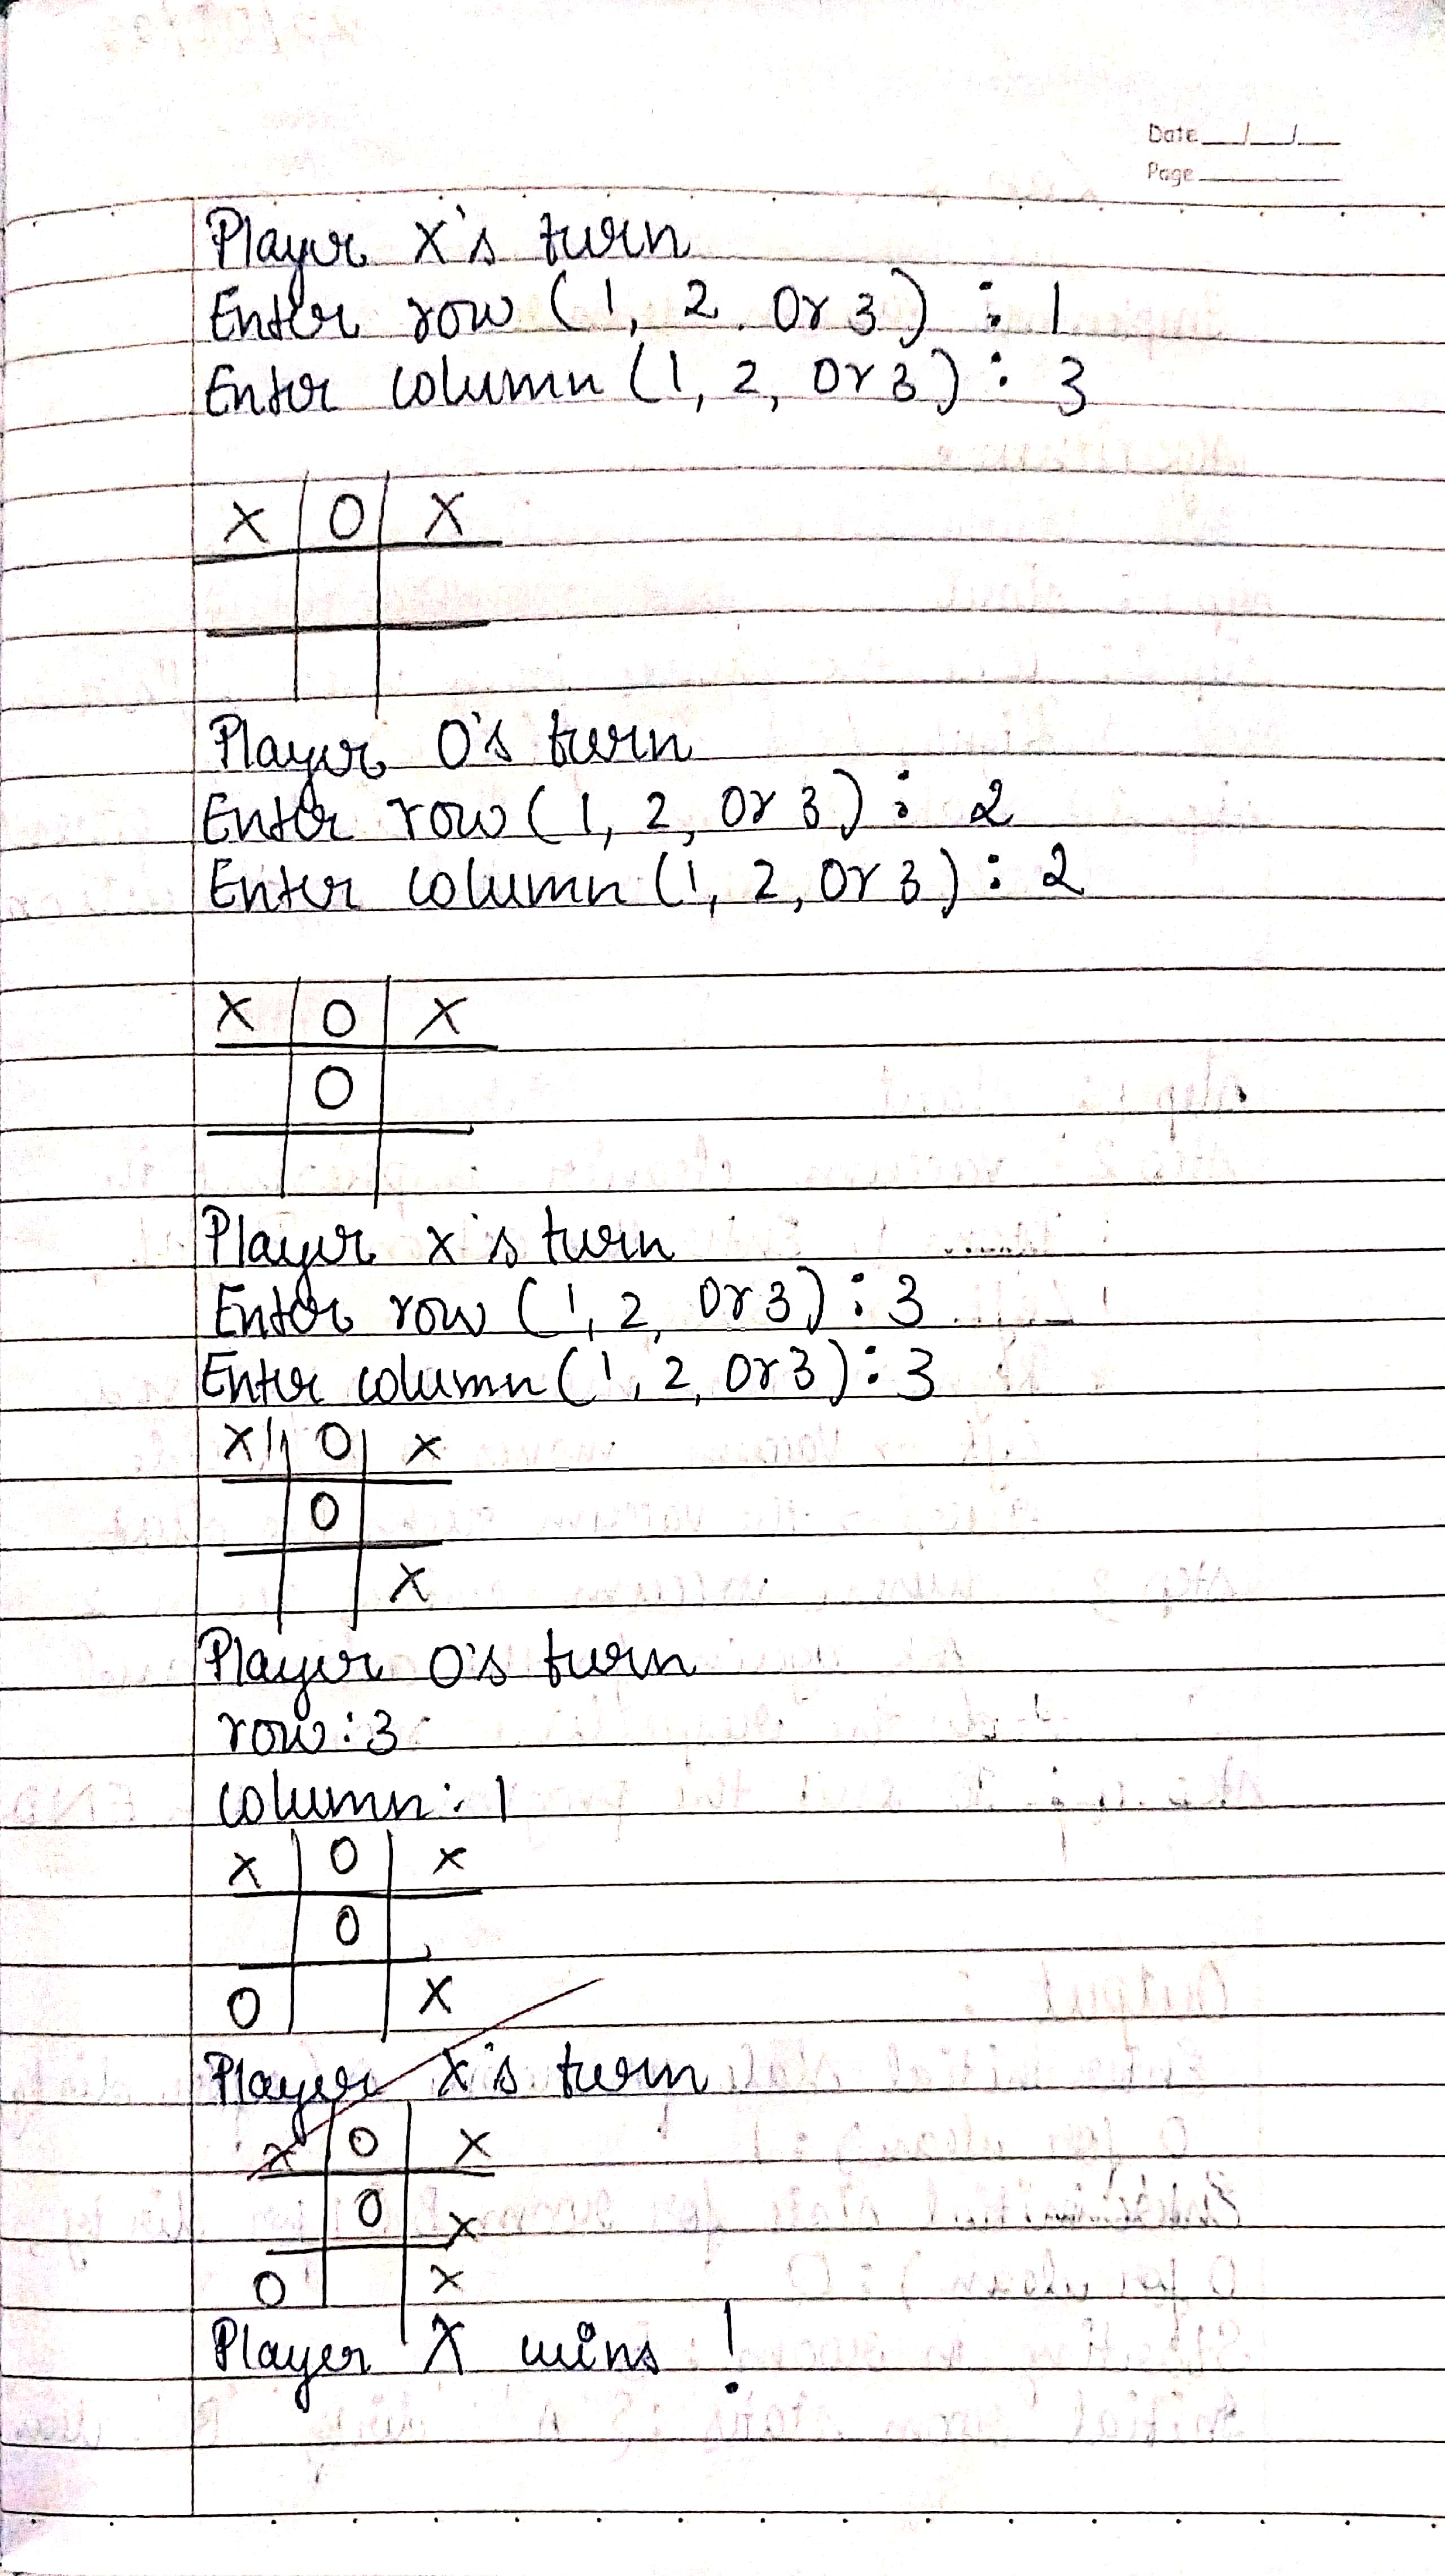 Date
Page
Player X's turn
Enter row (1, 2, Or 3) : 1
Enter column (1, 2, Or 3) : 3
X | O | X
Player O's turn
Enter row (1, 2, Or 3) : 2
Enter column (1, 2, Or 3) : 2
X | O | X
O
Player X's turn
Enter row (1, 2, Or 3) : 3
Enter column (1, 2, Or 3) : 3
X | O | X
O
X
Player O's turn
row : 3
column : 1
X | O | X
O
O | | X
Player X's turn
X | O | X
O | X
O | | X
Player X wins !